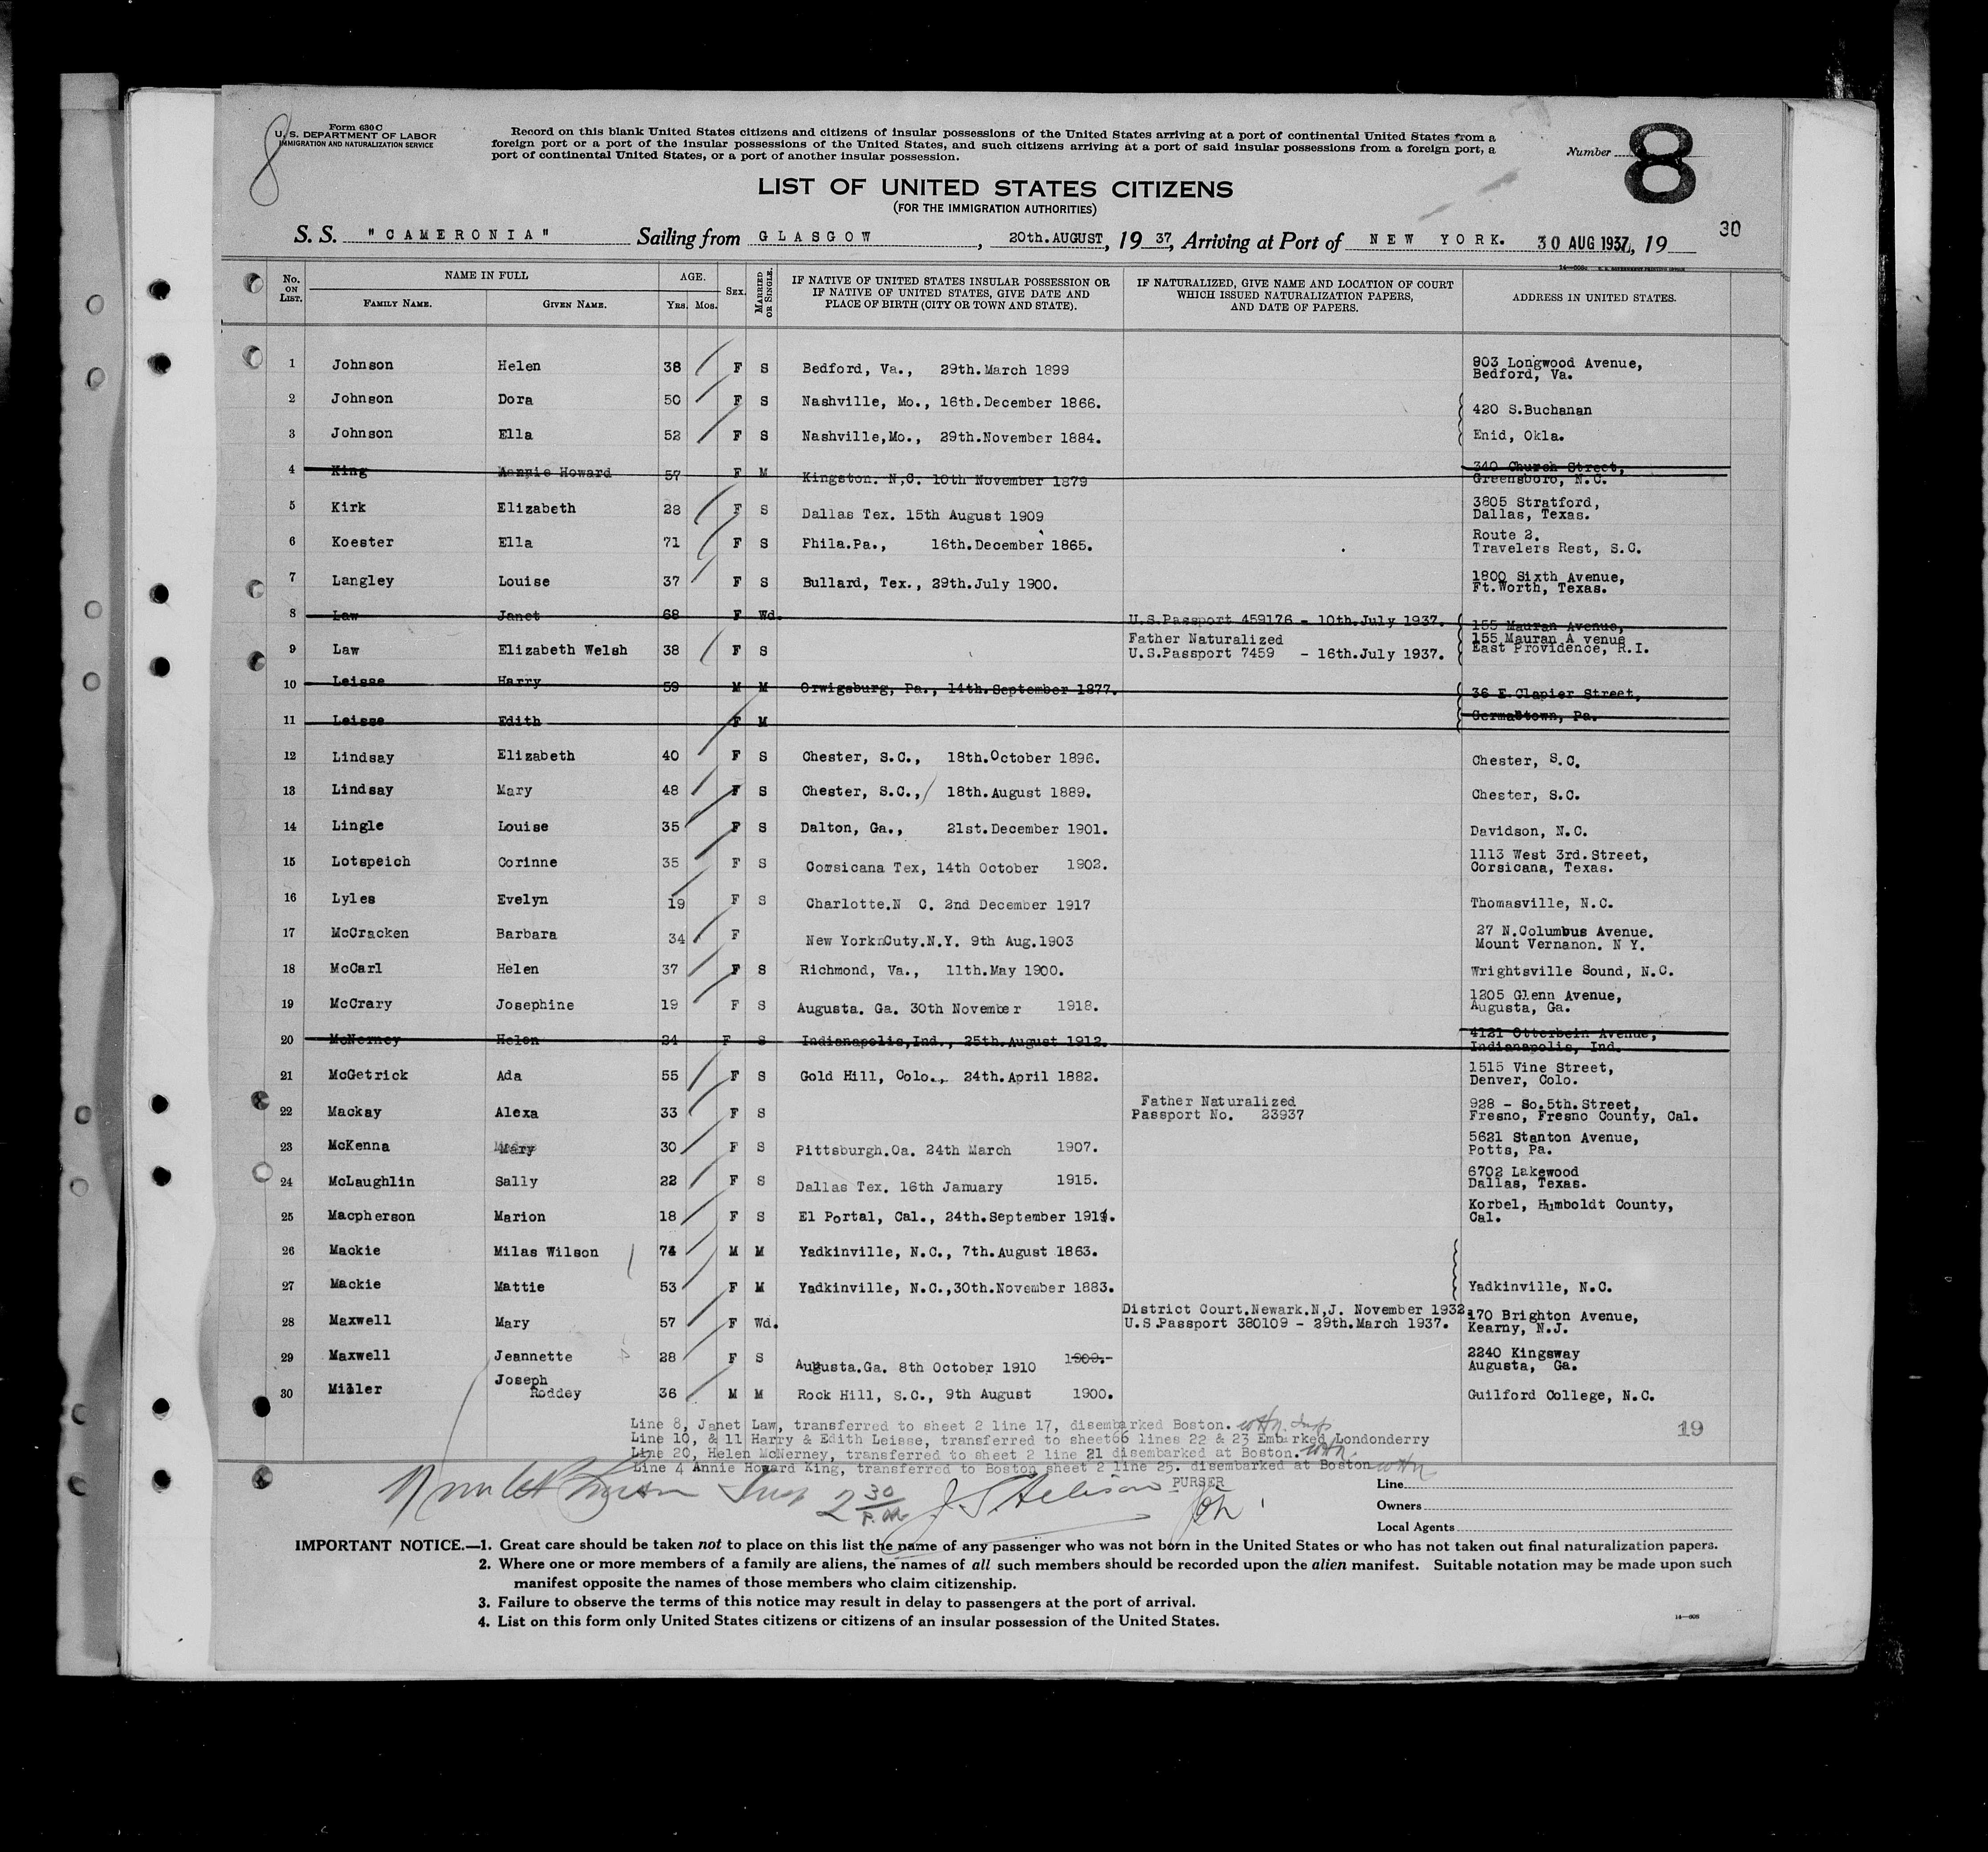 8
Form 630 C
U. S. DEPARTMENT OF LABOR
IMMIGRATION AND NATURALIZATION SERVICE
Record on this blank United States citizens and citizens of insular possessions of the United States arriving at a port of continental United States from a
foreign port or a port of the insular possessions of the United States, and such citizens arriving at a port of said insular possessions from a foreign port, a
port of continental United States, or a port of another insular possession.
Number 8
LIST OF UNITED STATES CITIZENS
(FOR THE IMMIGRATION AUTHORITIES)
30
S. S. "CAMERONIA" Sailing from GLASGOW, 20th.AUGUST, 1937, Arriving at Port of NEW YORK. 30 AUG 1937, 19
No. ON LIST. NAME IN FULL FAMILY NAME. GIVEN NAME. AGE. YRS. MOS. SEX. MARRIED OR SINGLE. IF NATIVE OF UNITED STATES INSULAR POSSESSION OR IF NATIVE OF UNITED STATES, GIVE DATE AND PLACE OF BIRTH (CITY OR TOWN AND STATE). IF NATURALIZED, GIVE NAME AND LOCATION OF COURT WHICH ISSUED NATURALIZATION PAPERS, AND DATE OF PAPERS. ADDRESS IN UNITED STATES.
1 Johnson Helen 38 F S Bedford, Va., 29th.March 1899 803 Longwood Avenue, Bedford, Va.
2 Johnson Dora 50 F S Nashville, Mo., 16th.December 1866. 420 S.Buchanan
3 Johnson Ella 52 F S Nashville,Mo., 29th.November 1884. Enid, Okla.
4 King Annie Howard 57 F M Kingston. N,C. 10th November 1879 340 Church Street, Greensboro, N.C.
5 Kirk Elizabeth 28 F S Dallas Tex. 15th August 1909 3805 Stratford, Dallas, Texas.
6 Koester Ella 71 F S Phila.Pa., 16th.December 1865. Route 2. Travelers Rest, S.C.
7 Langley Louise 37 F S Bullard, Tex., 29th.July 1900. 1800 Sixth Avenue, Ft.Worth, Texas.
8 Law Janet 68 F Wd. U.S.Passport 459176 - 10th.July 1937. 155 Mauran Avenue,
9 Law Elizabeth Welsh 38 F S Father Naturalized U.S.Passport 7459 - 16th.July 1937. 155 Mauran A venue East Providence, R.I.
10 Leisse Harry 59 M M Orwigsburg, Pa., 14th.September 1877. 36 E.Clapier Street,
11 Leisse Edith F M Germantown, Pa.
12 Lindsay Elizabeth 40 F S Chester, S.C., 18th.October 1896. Chester, S.C.
13 Lindsay Mary 48 F S Chester, S.C., 18th.August 1889. Chester, S.C.
14 Lingle Louise 35 F S Dalton, Ga., 21st.December 1901. Davidson, N.C.
15 Lotspeich Corinne 35 F S Corsicana Tex, 14th October 1902. 1113 West 3rd.Street, Corsicana, Texas.
16 Lyles Evelyn 19 F S Charlotte.N C. 2nd December 1917 Thomasville, N.C.
17 McCracken Barbara 34 F New YorknCuty.N.Y. 9th Aug.1903 27 N.Columbus Avenue. Mount Vernanon. N Y.
18 McCarl Helen 37 F S Richmond, Va., 11th.May 1900. Wrightsville Sound, N.C.
19 McCrary Josephine 19 F S Augusta. Ga. 30th November 1918. 1205 Glenn Avenue, Augusta, Ga.
20 McNerney Helen 24 F S Indianapolis,Ind., 25th.August 1912. 4121 Otterbein Avenue, Indianapolis, Ind.
21 McGetrick Ada 55 F S Gold Hill, Colo., 24th.April 1882. 1515 Vine Street, Denver, Colo.
22 Mackay Alexa 33 F S Father Naturalized Passport No. 23937 928 - So.5th.Street, Fresno, Fresno County, Cal.
23 McKenna Mary 30 F S Pittsburgh.Oa. 24th March 1907. 5621 Stanton Avenue, Potts, Pa.
24 McLaughlin Sally 22 F S Dallas Tex. 16th January 1915. 6702 Lakewood Dallas, Texas.
25 Macpherson Marion 18 F S El Portal, Cal., 24th.September Korbel, Humboldt County, Cal.
26 Mackie Milas Wilson 74 M M Yadkinville, N.C., 7th.August 1863.
27 Mackie Mattie 53 F M Yadkinville, N.C.,30th.November 1883. Yadkinville, N.C.
28 Maxwell Mary 57 F Wd. District Court.Newark.N,J. November 1932. U.S.Passport 380109 - 29th.March 1937. 170 Brighton Avenue, Kearny, N.J.
29 Maxwell Jeannette 28 F S Augusta.Ga. 8th October 1910 1909.- 2240 Kingsway Augusta, Ga.
30 Miller Joseph Roddey 36 M M Rock Hill, S.C., 9th August 1900. Guilford College, N.C.
Line 8, Janet Law, transferred to sheet 2 line 17, disembarked Boston.
Line 10, & 11 Harry & Edith Leisse, transferred to sheet66 lines 22 & 23 Embarked Londonderry
Line 20, Helen McNerney, transferred to sheet 2 line 21 disembarked at Boston.
Line 4 Annie Howard King, transferred to Boston sheet 2 line 25. disembarked at Boston
19
2 30 P.M.
PURSER
Line
Owners
Local Agents
IMPORTANT NOTICE.—1. Great care should be taken not to place on this list the name of any passenger who was not born in the United States or who has not taken out final naturalization papers.
2. Where one or more members of a family are aliens, the names of all such members should be recorded upon the alien manifest. Suitable notation may be made upon such
manifest opposite the names of those members who claim citizenship.
3. Failure to observe the terms of this notice may result in delay to passengers at the port of arrival.
4. List on this form only United States citizens or citizens of an insular possession of the United States.